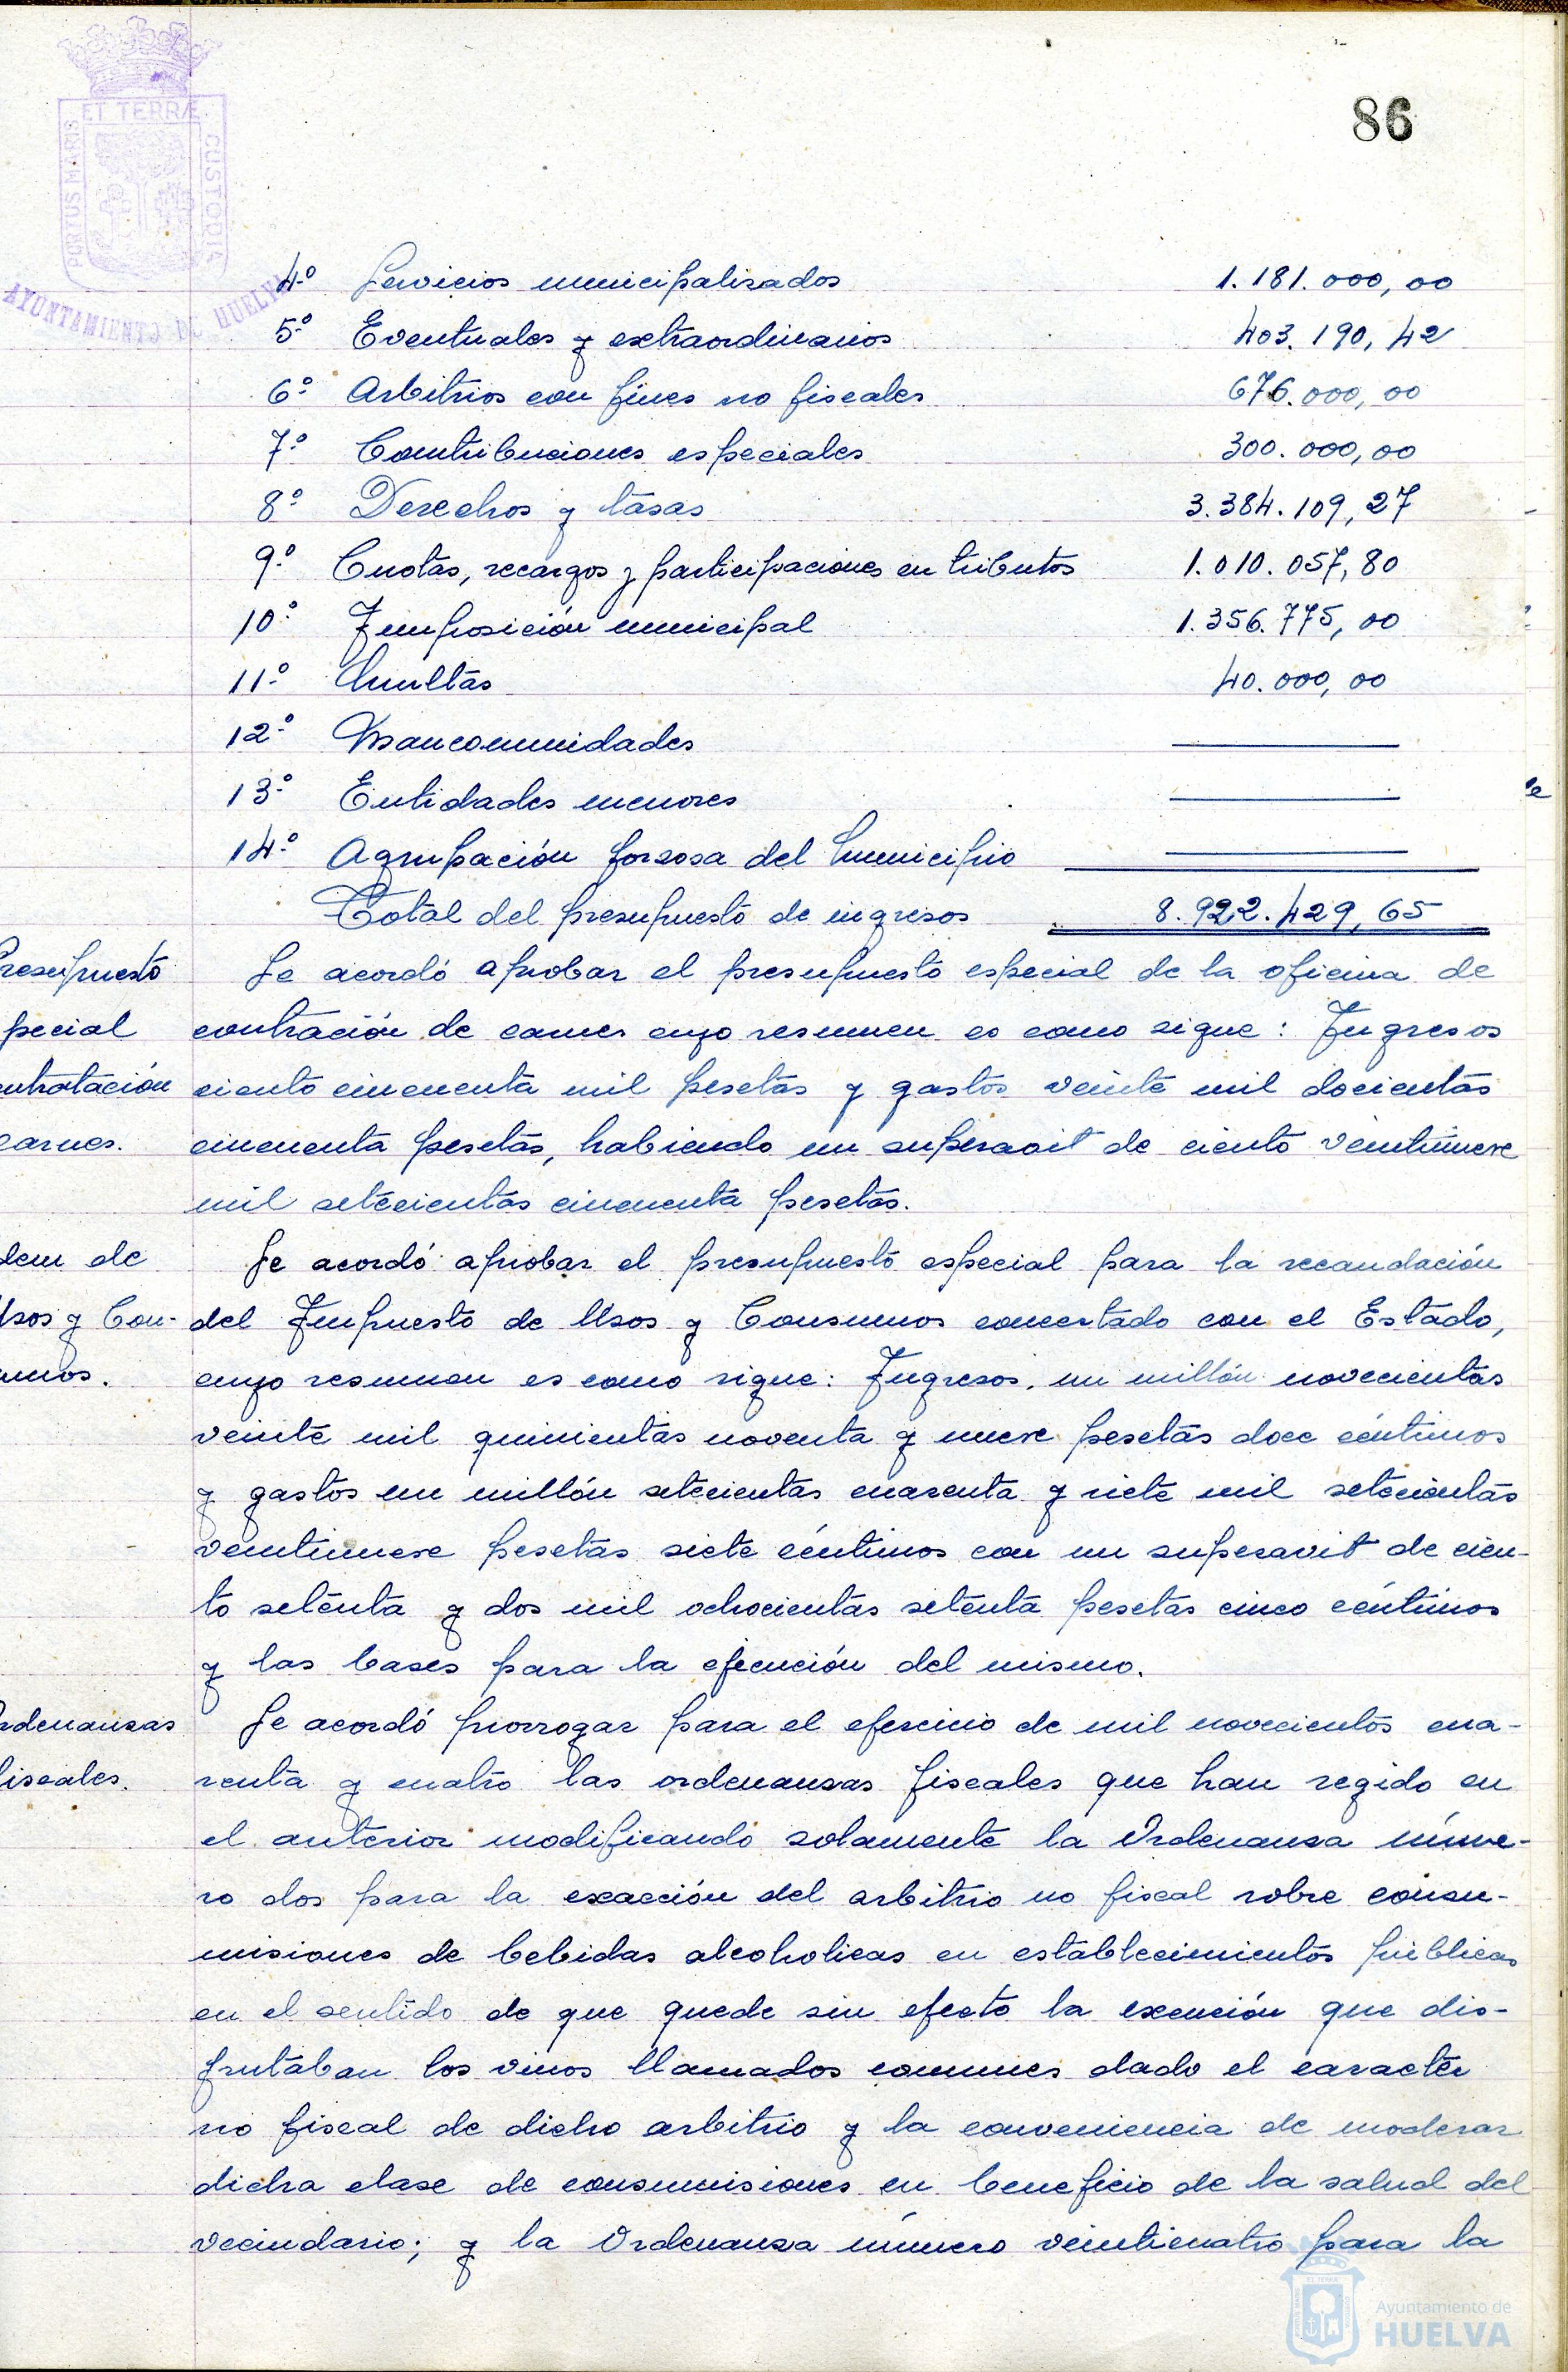 86
PORTUS MARIS ET TERRÆ CUSTODIA
AYUNTAMIENTO DE HUELVA
4º Servicios municipalizados 1.181.000,00
5º Eventuales y extraordinarios 403.190,42
6º Arbitrios con fines no fiscales 676.000,00
7º Contribuciones especiales 300.000,00
8º Derechos y tasas 3.384.109,27
9º Cuotas, recargos y participaciones en tributos 1.010.057,80
10º Imposición municipal 1.356.775,00
11º Multas 40.000,00
12º Mancomunidades
13º Entidades menores
14º Agrupación forzosa del Municipio
Total del presupuesto de ingresos 8.922.429,65
resupuesto Se acordó aprobar el presupuesto especial de la oficina de
pecial contración de carnes cuyo resumen es como sigue: Ingresos
ntratación ciento cincuenta mil pesetas y gastos veinte mil docientas
carnes. cincuenta pesetas, habiendo un superavit de ciento veintinueve
mil setecientas cincuenta pesetas.
dem de Se acordó aprobar el presupuesto especial para la recaudación
Usos y Con- del Impuesto de Usos y Consumos concertado con el Estado,
umos. cuyo resumen es como sigue: Ingresos, un millón novecientas
veinte mil quinientas noventa y nueve pesetas doce céntimos
y gastos un millón setecientas cuarenta y siete mil setecientas
veintinueve pesetas siete céntimos con un superavit de cien-
to setenta y dos mil ochocientas setenta pesetas cinco céntimos
y las bases para la ejecución del mismo.
rdenanzas Se acordó prorrogar para el ejercicio de mil novecientos cua-
fiscales. renta y cuatro las ordenanzas fiscales que han regido en
el anterior modificando solamente la Ordenanza núme-
ro dos para la exacción del arbitrio no fiscal sobre consu-
misiones de bebidas alcoholicas en establecimientos públicos
en el sentido de que quede sin efecto la exención que dis-
frutaban los vinos llamados comunes dado el caracter
no fiscal de dicho arbitrio y la conveniencia de moderar
dicha clase de consumisiones en beneficio de la salud del
vecindario; y la Ordenanza número veinticuatro para la
Ayuntamiento de
HUELVA